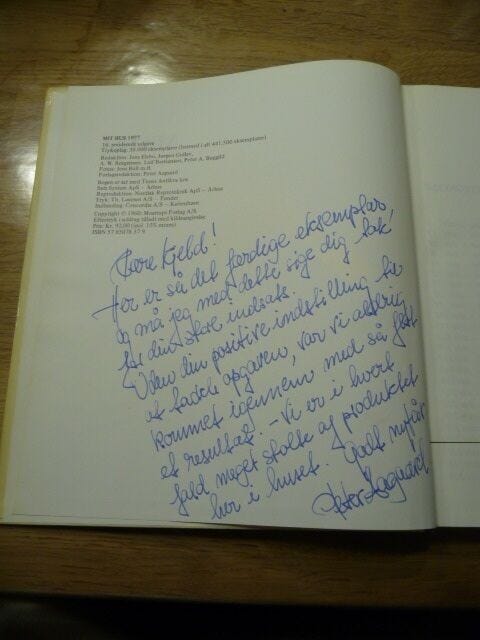 MIT HUS 1977
16. reviderede udgave
Redaktion: Jens Elebo, Jørgen Gullev,
A. W. Jørgensen, Leif Bertelsen, Peter A. Baggild
Fotos: Jess Bøll m.fl.
Forlagsredaktion: Peter Aagaard
Bogen er sat med Times Antikva hos
Satz System ApS – Århus
Reproduktion: Nordisk Reproteknik ApS – Århus
Tryk: Th. Laursen A/S – Tønder
Indbinding: Concordia A/S – København
Copyright © 1960: Mostrups Forlag A/S
Eftertryk i uddrag tilladt med kildeangivelse
Pris: Kr. 92,00 (incl. 15% moms)
Kære Kjeld!
Her er så det færdige eksemplar
og må jeg med dette sige dig tak
for din store indsats.
Uden din positive indstilling til
et sådan opgaven, var vi aldrig
kommet igennem med så flot
et resultat. – Vi er i hvert
fald meget stolte af produktet
her i huset. Godt nytår
Peter Aagaard